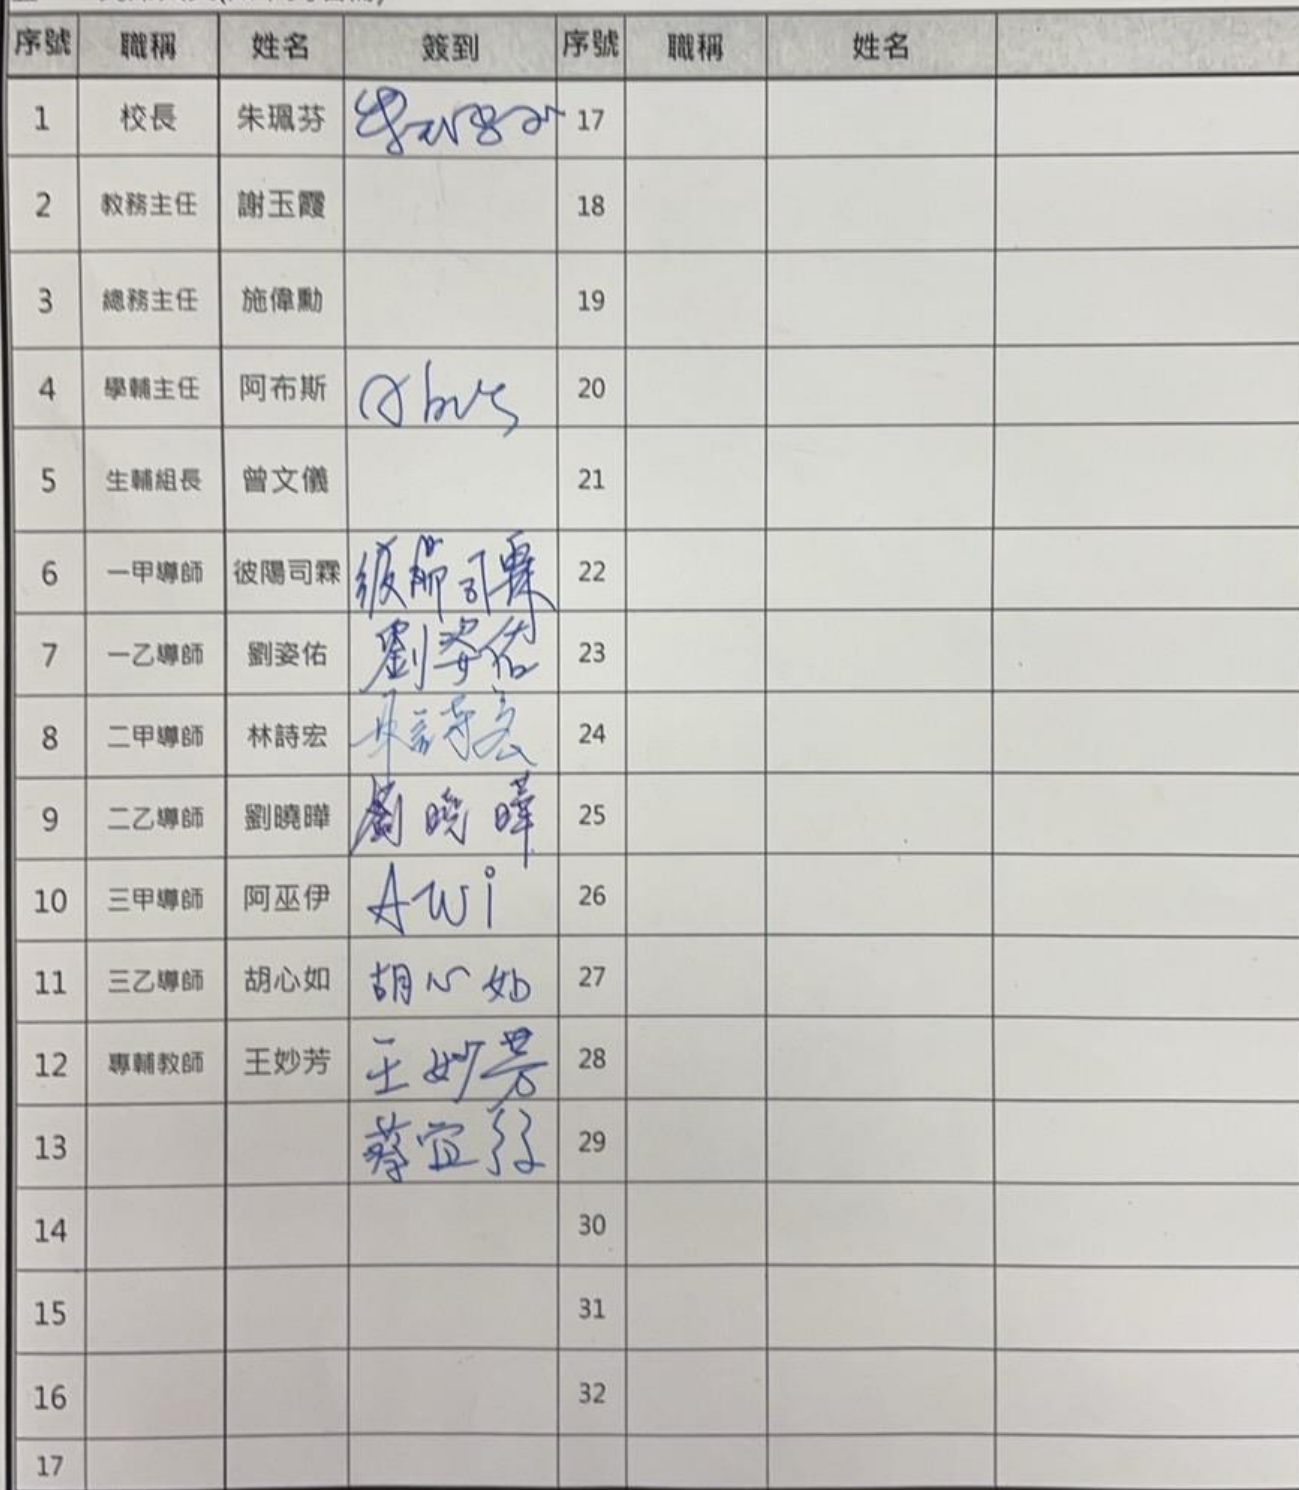 序號 職稱 姓名 簽到 序號 職稱 姓名
1 校長 朱珮芬 17
2 教務主任 謝玉霞 18
3 總務主任 施偉勳 19
4 學輔主任 阿布斯 abus 20
5 生輔組長 曾文儀 21
6 一甲導師 彼陽司霖 彼陽司霖 22
7 一乙導師 劉姿佑 劉姿佑 23
8 二甲導師 林詩宏 林詩宏 24
9 二乙導師 劉曉曄 劉曉曄 25
10 三甲導師 阿巫伊 Awi 26
11 三乙導師 胡心如 胡心如 27
12 專輔教師 王妙芳 王妙芳 28
13 蔡宜 29
14 30
15 31
16 32
17